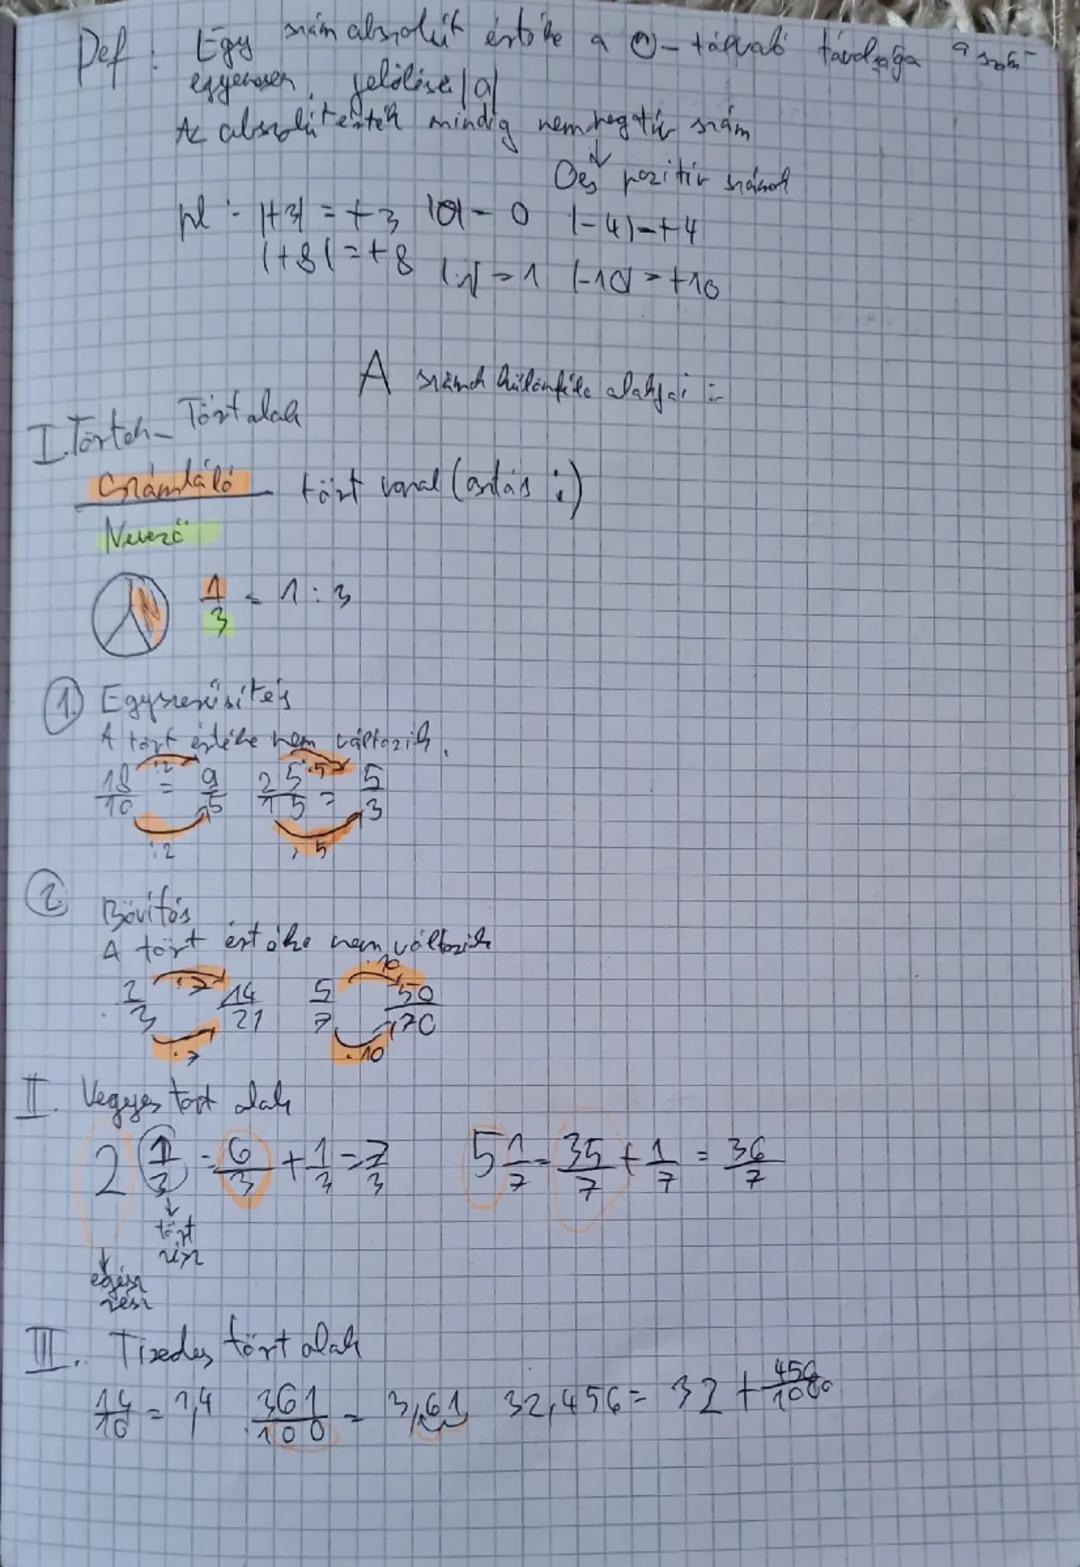 Def: Egy szám abszolút értéke a 0-tól való távolsága a szám
egyenesen, jelölése |a|
Az abszolút érték mindig nem negatív szám
↓
0 és pozitív számok
pl: |+3| = +3 |0| = 0 |-4| = +4
|+8| = +8 |-1| = 1 |-10| = +10
A számok különféle alakjai:
I. Törtek - Tört alak
Számláló - tört vonal (osztás :)
Nevező
1/3 = 1 : 3
① Egyszerűsítés
A tört értéke nem változik.
:2 :5
18/10 = 9/5 25/15 = 5/3
:2 :5
② Bővítés
A tört értéke nem változik
·7 ·10
2/3 14/21 5/7 50/70
·7 ·10
II. Vegyes tört alak
2 1/3 = 6/3 + 1/3 = 7/3 5 1/7 = 35/7 + 1/7 = 36/7
↓
tört
rész
↓
egész
rész
III. Tizedes tört alak
14/10 = 1,4 361/100 = 3,61 32,456 = 32 + 456/1000